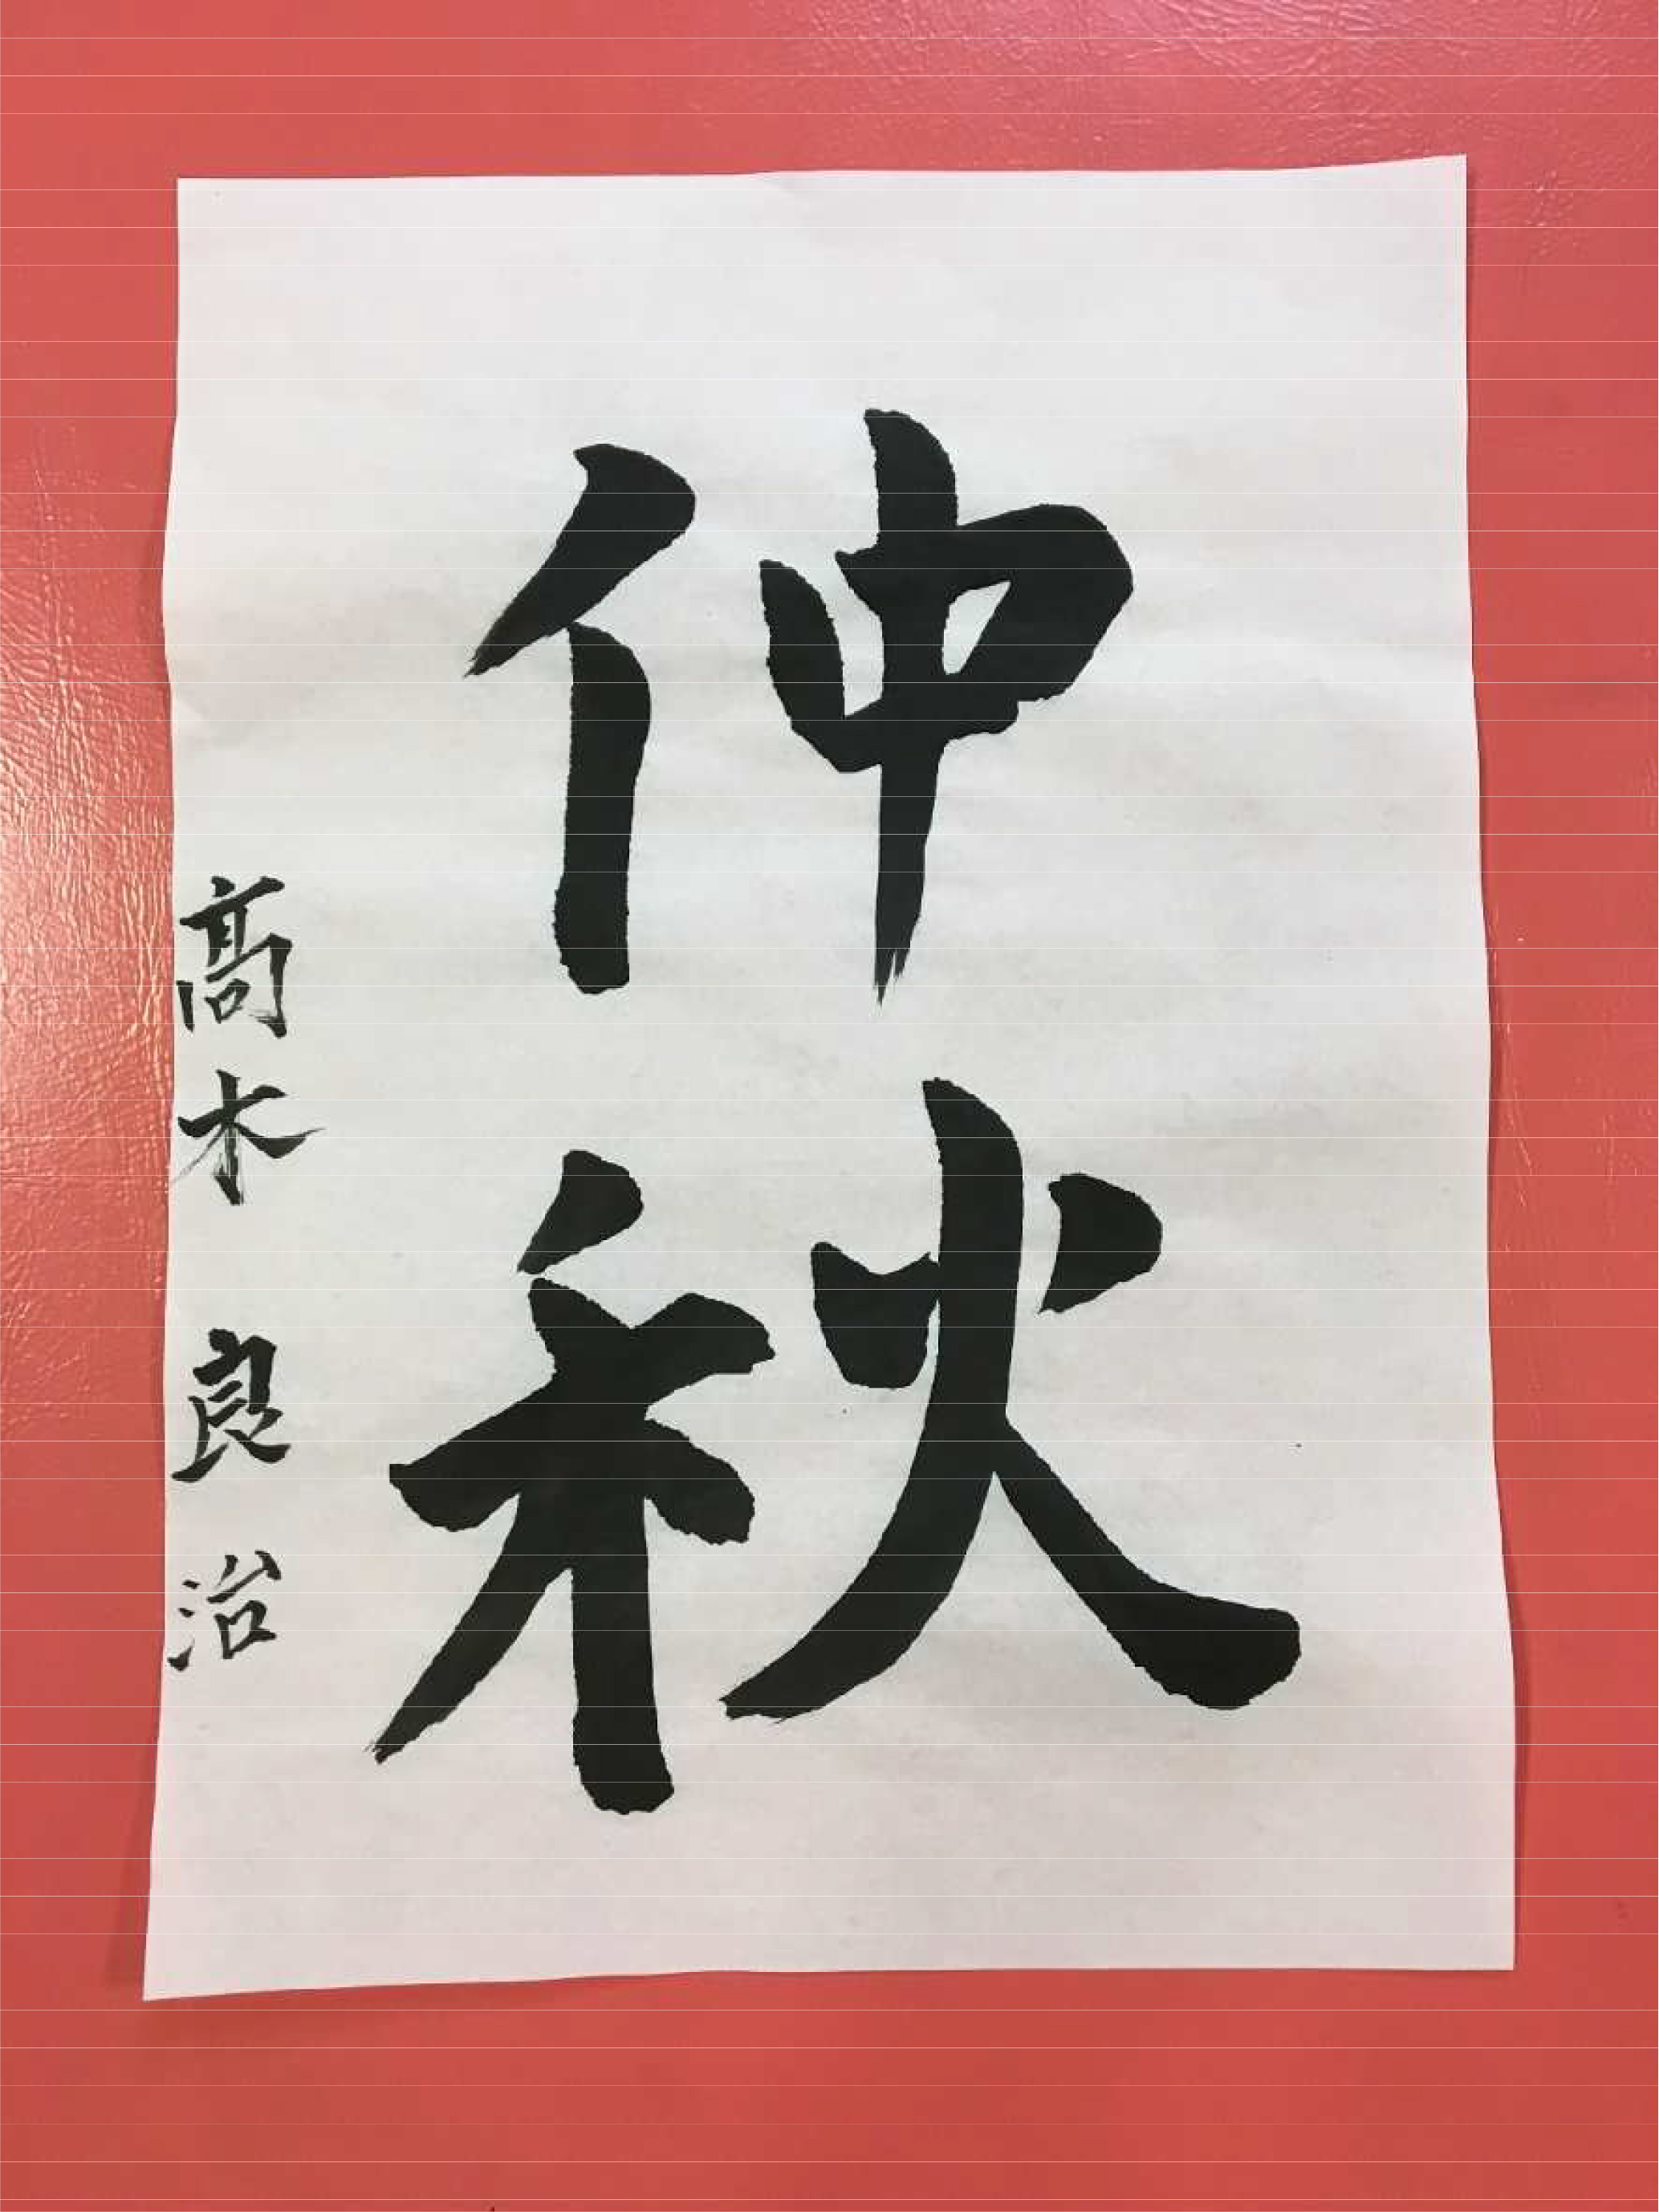 仲秋
髙木良治